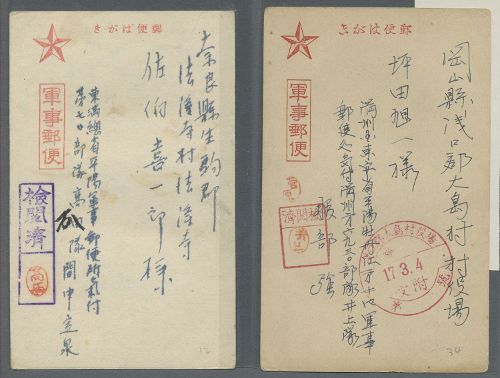 郵便はがき
軍事郵便
奈良縣生駒郡
法隆寺村法隆寺
佐伯喜一郎様
東満總省平陽軍事郵便所氣付
第七〇部隊高
隊
檢閲濟
12
郵便はがき
軍事郵便
岡山縣浅口郡大島村村役場
坪田旭一様
満州國東安省平陽
軍事
郵便所氣付満洲第六九三〇部隊井上隊
服部強
檢閲濟
大島村役場
17.3.4
受附
34